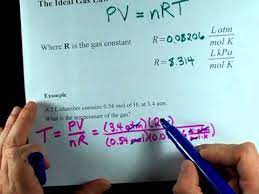 The Ideal Gas Law
PV = nRT
Where R is the gas constant
R = 0.08206 L atm / mol K
R = 8.314 L kPa / mol K
Example
A 2 L chamber contains 0.54 mol of H₂ at 3.4 atm.
What is the temperature of the gas?
T = PV / nR = (3.4 atm)(2 / (0.54 mol)(0.0